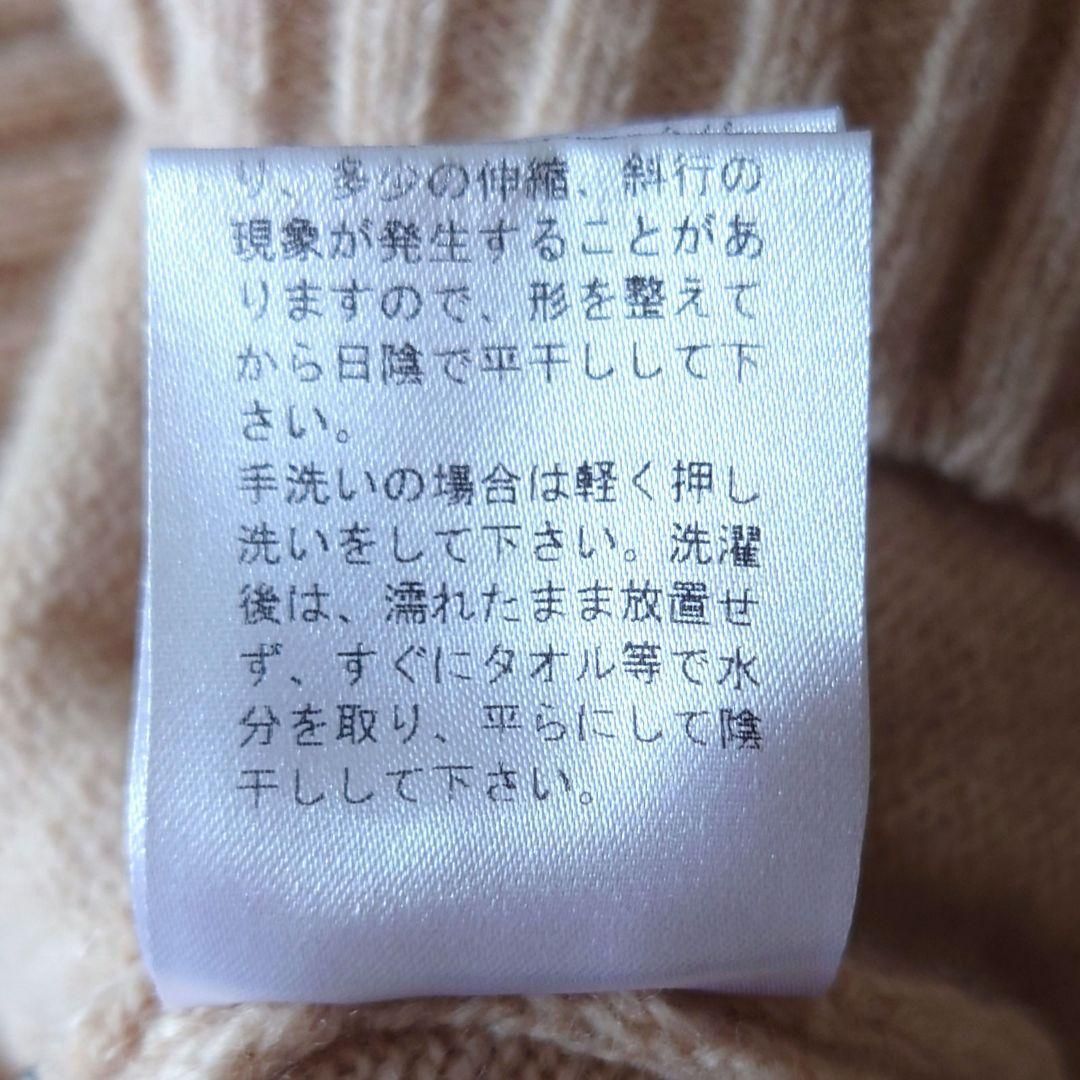 り、多少の伸縮、斜行の
現象が発生することがあ
りますので、形を整えて
から日陰で平干しして下
さい。
手洗いの場合は軽く押し
洗いをして下さい。洗濯
後は、濡れたまま放置せ
ず、すぐにタオル等で水
分を取り、平らにして陰
干しして下さい。